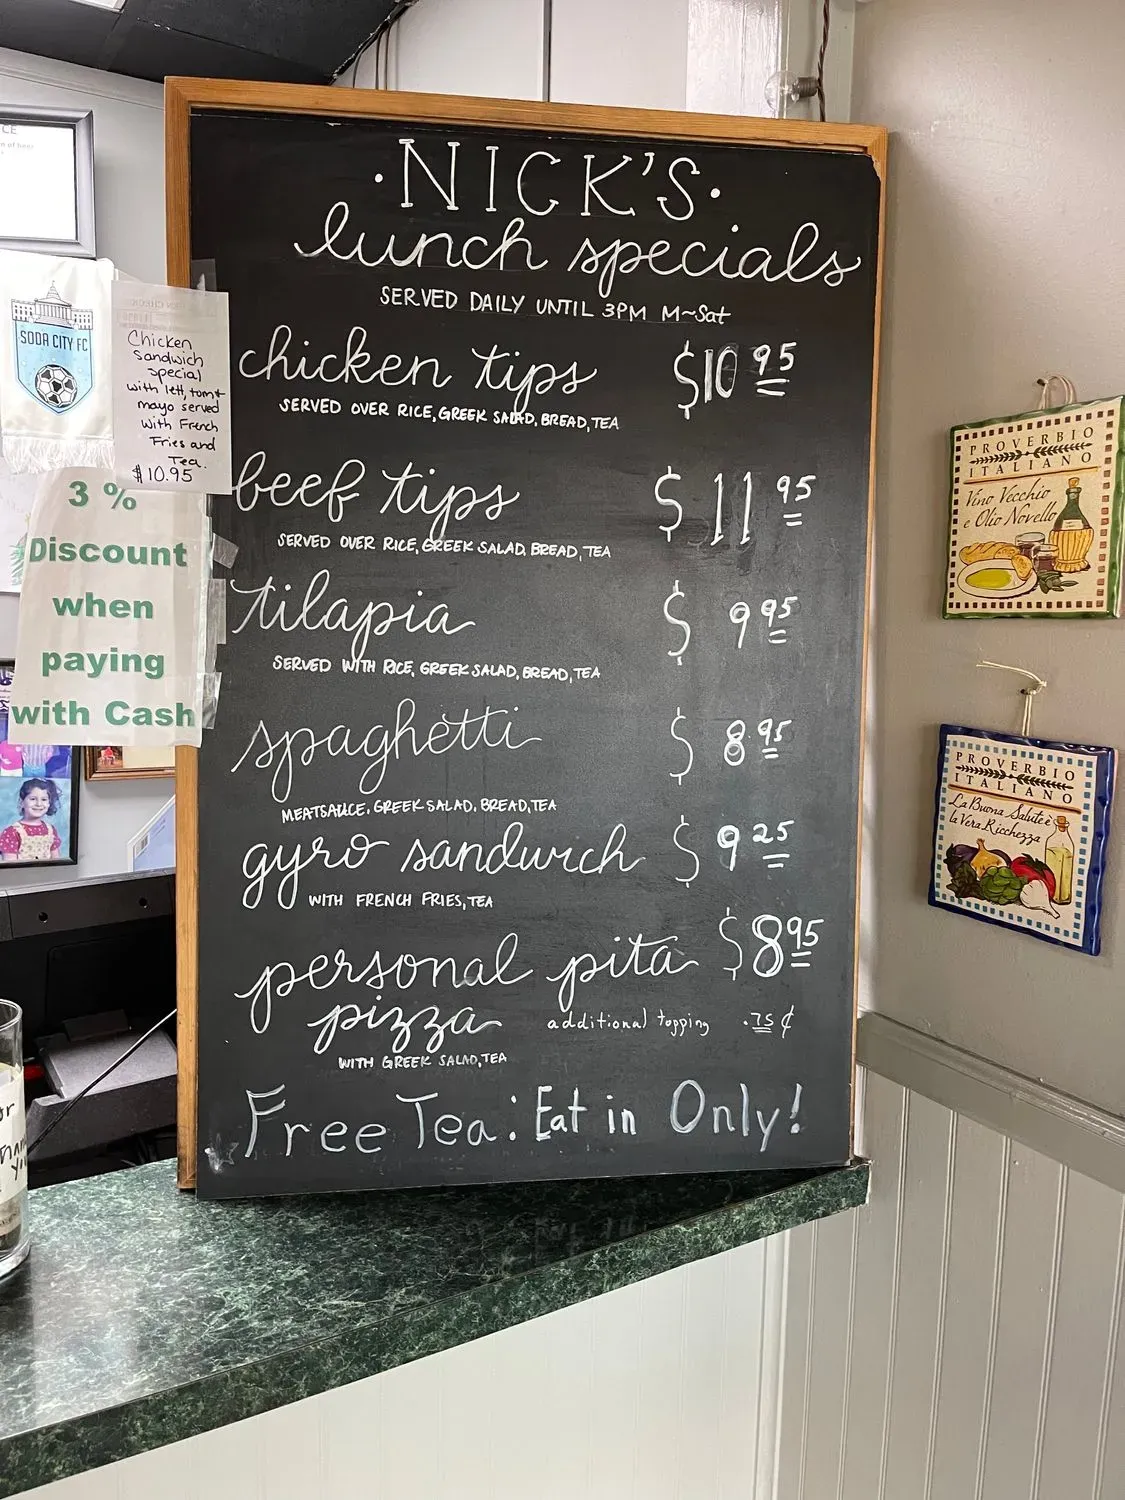 ·NICK'S·
lunch specials
SERVED DAILY UNTIL 3PM M~Sat
chicken tips $10 95
SERVED OVER RICE, GREEK SALAD, BREAD, TEA
beef tips $11 95
SERVED OVER RICE, GREEK SALAD, BREAD, TEA
tilapia $9 95
SERVED WITH RICE, GREEK SALAD, BREAD, TEA
spaghetti $8 95
MEATSAUCE, GREEK SALAD, BREAD, TEA
gyro sandwich $9 25
WITH FRENCH FRIES, TEA
personal pita $8 95
pizza additional topping .75¢
WITH GREEK SALAD, TEA
Free Tea: Eat in Only!
SODA CITY FC
Chicken
Sandwich
special
with lett, tom+
mayo served
with French
Fries and
Tea.
$10.95
3 %
Discount
when
paying
with Cash
PROVERBIO
ITALIANO
Vino Vecchio
e Olio Novello
PROVERBIO
ITALIANO
La Buona Salute è
la Vera Ricchezza